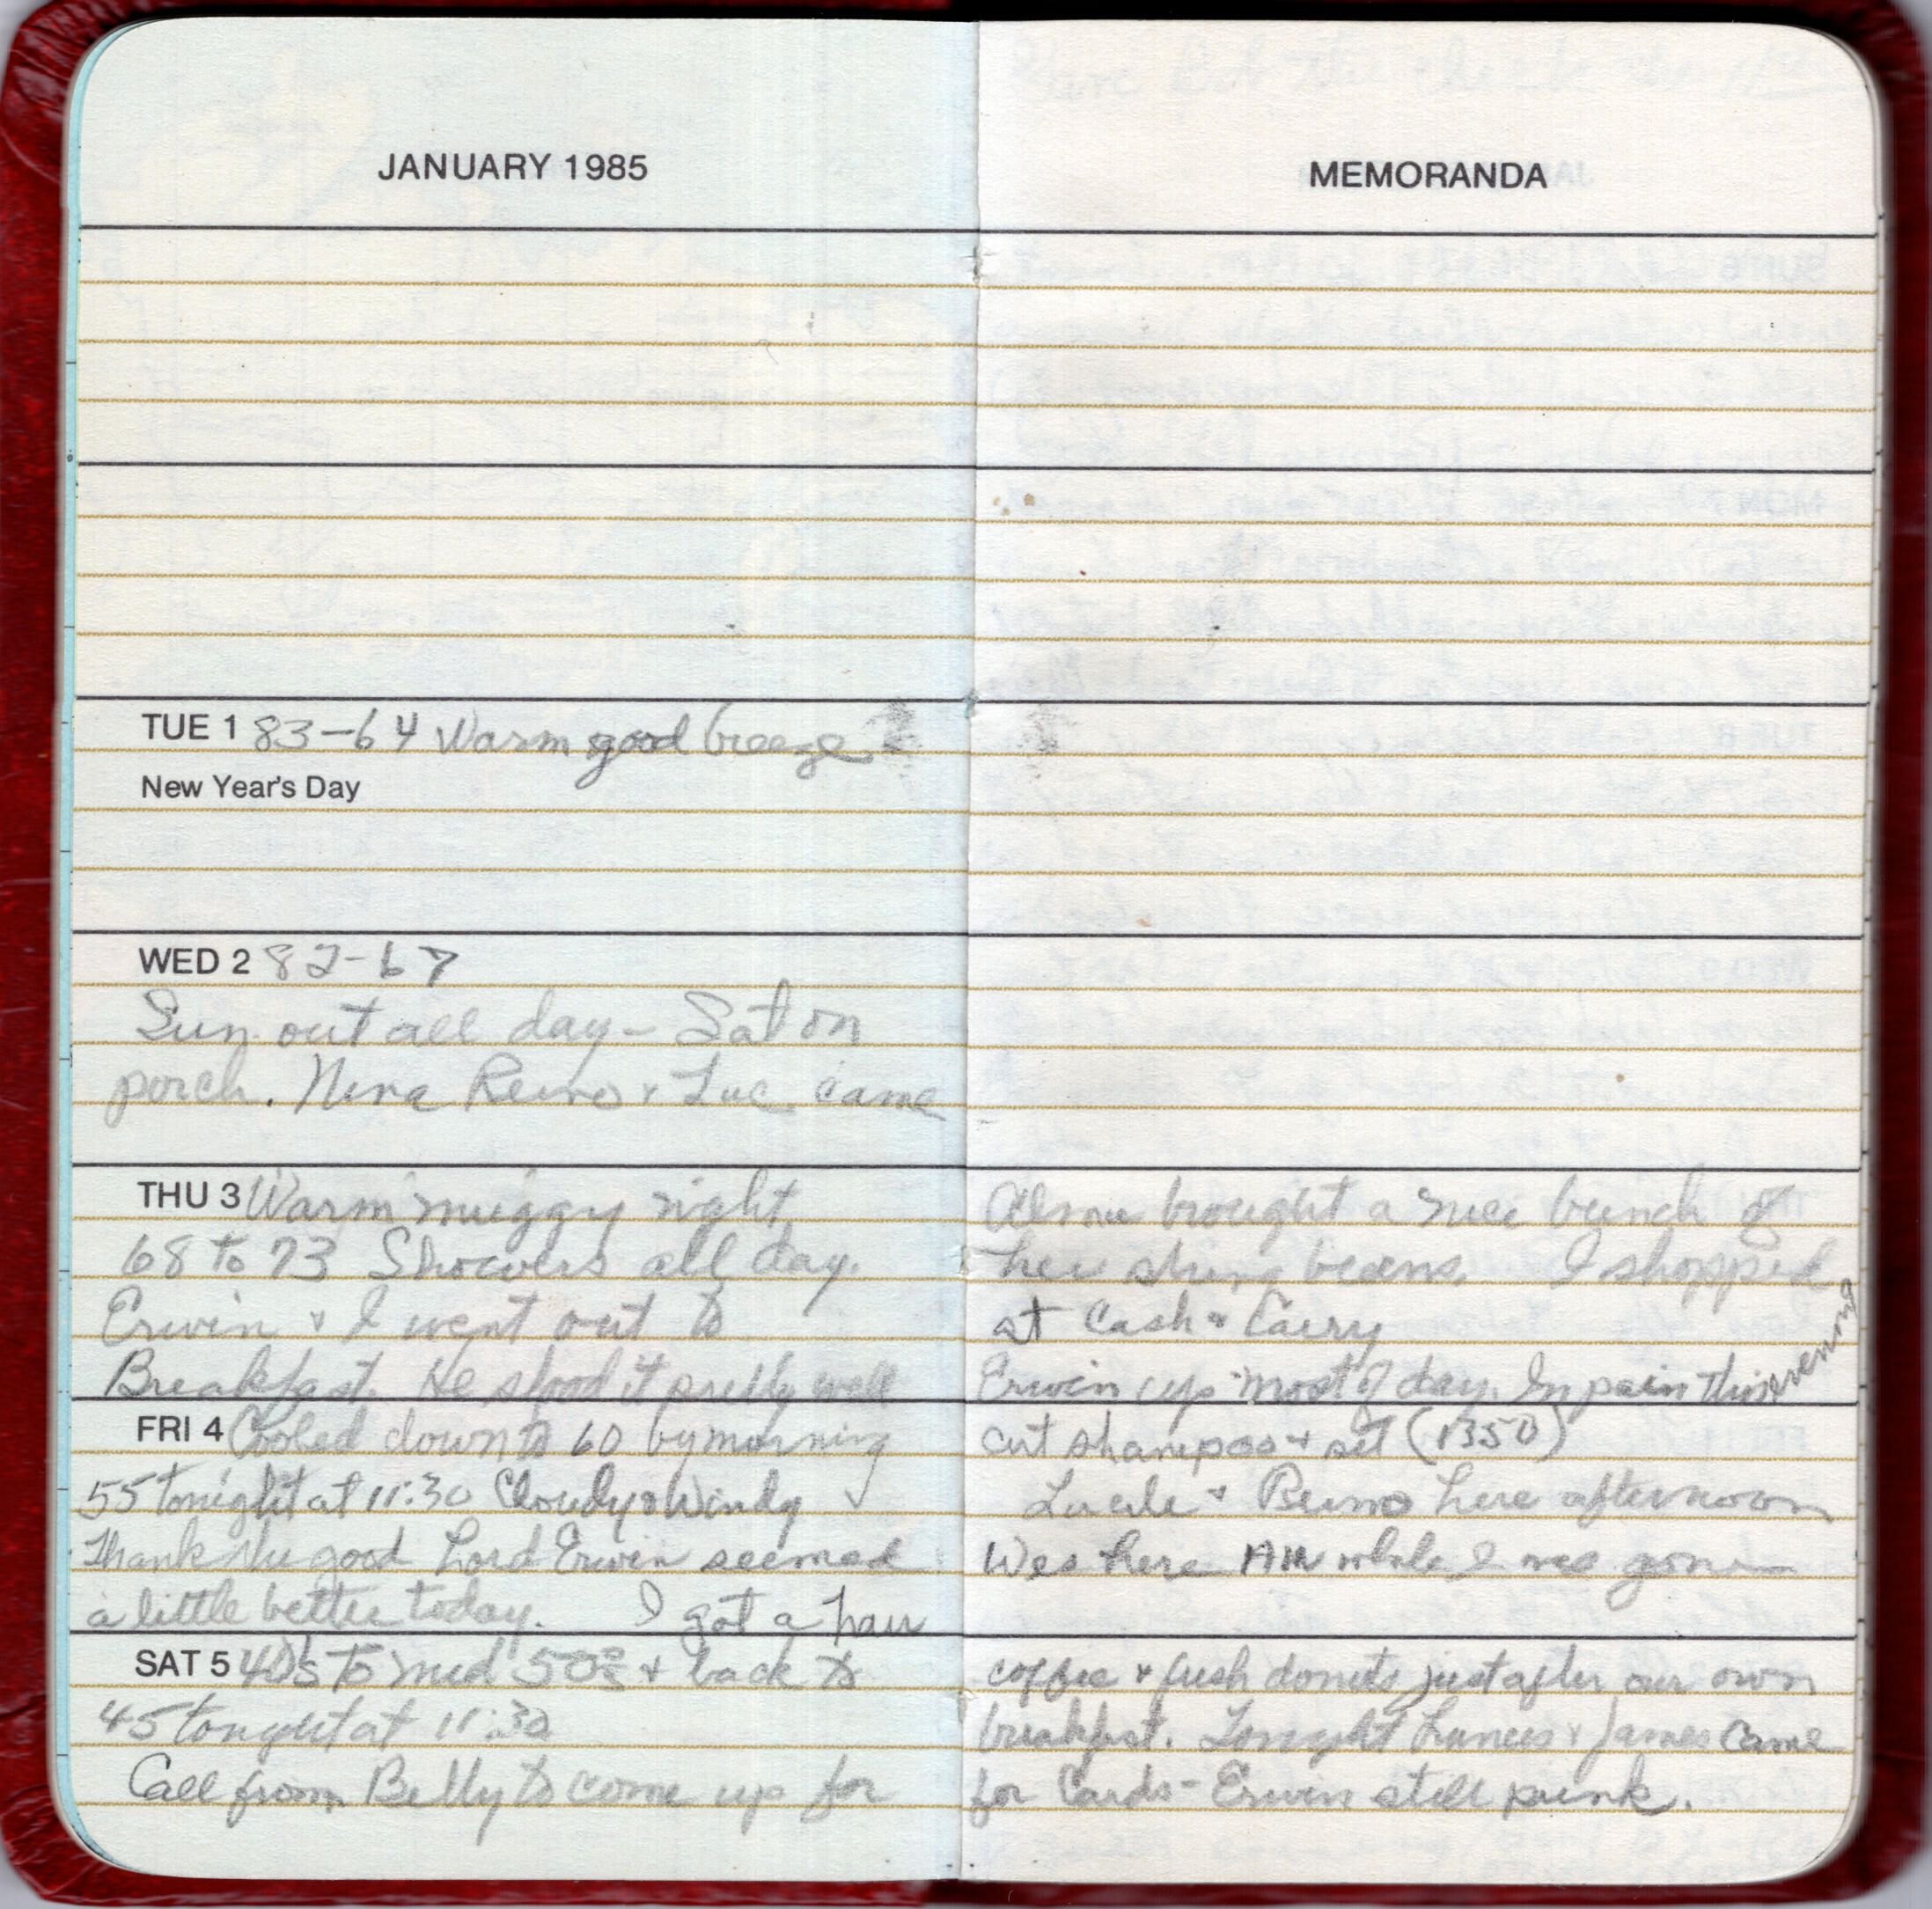 JANUARY 1985
TUE 1 83-64 Warm good breeze
New Year's Day
WED 2 82-67
Sun out all day - Sat on
porch. & Luc. came
THU 3 Warm muggy night
68 to 73 Showers all day.
Erwin & I went out to
Breakfast. He stood it pretty well
FRI 4 Cooled down to 60 by morning
55 tonight at 11:30 Cloudy & Windy
Thank the good Lord Erwin seemed
a little better today. I got a hair
SAT 5 40's to mid 50s & back to
45 tonight at 11:30
Call from Betty to come up for
MEMORANDA
brought a nice bunch of
her string beans. I shopped
at Cash & Carry
Erwin up most of day. In pain this evening
cut shampoo & set (1350)
Lucile & here afternoon
Wes here AM while I was gone
coffee & fresh donuts just after our own
breakfast. Tonight Frances & James came
for Cards - Erwin still punk.